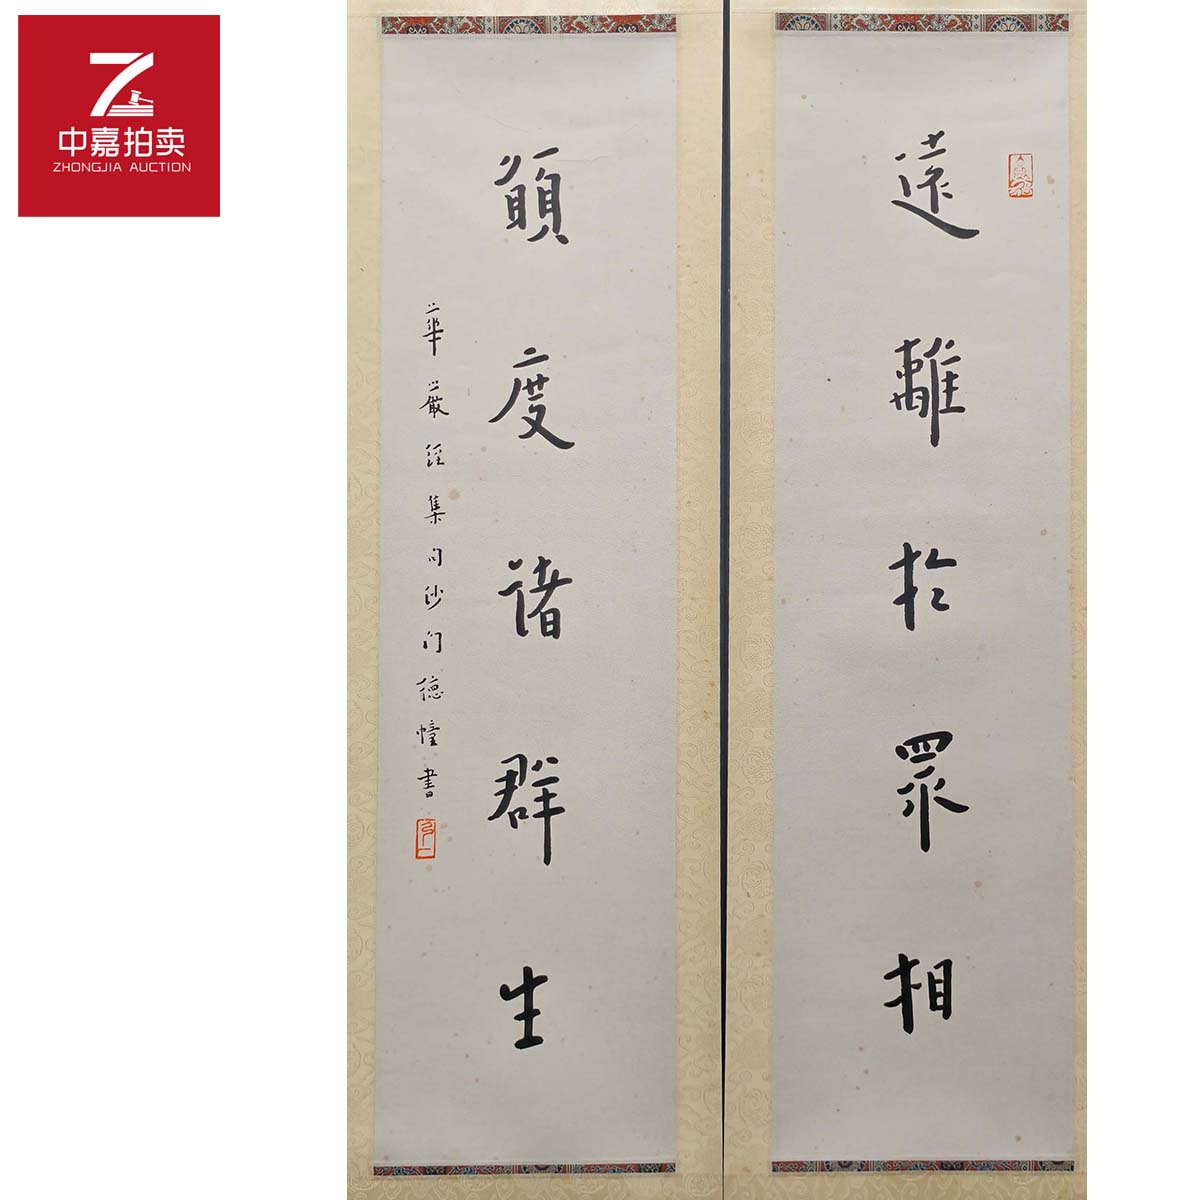 中嘉拍卖
ZHONGJIA AUCTION
遠離於眾相
願度諸群生
華嚴經集句沙门德幢書